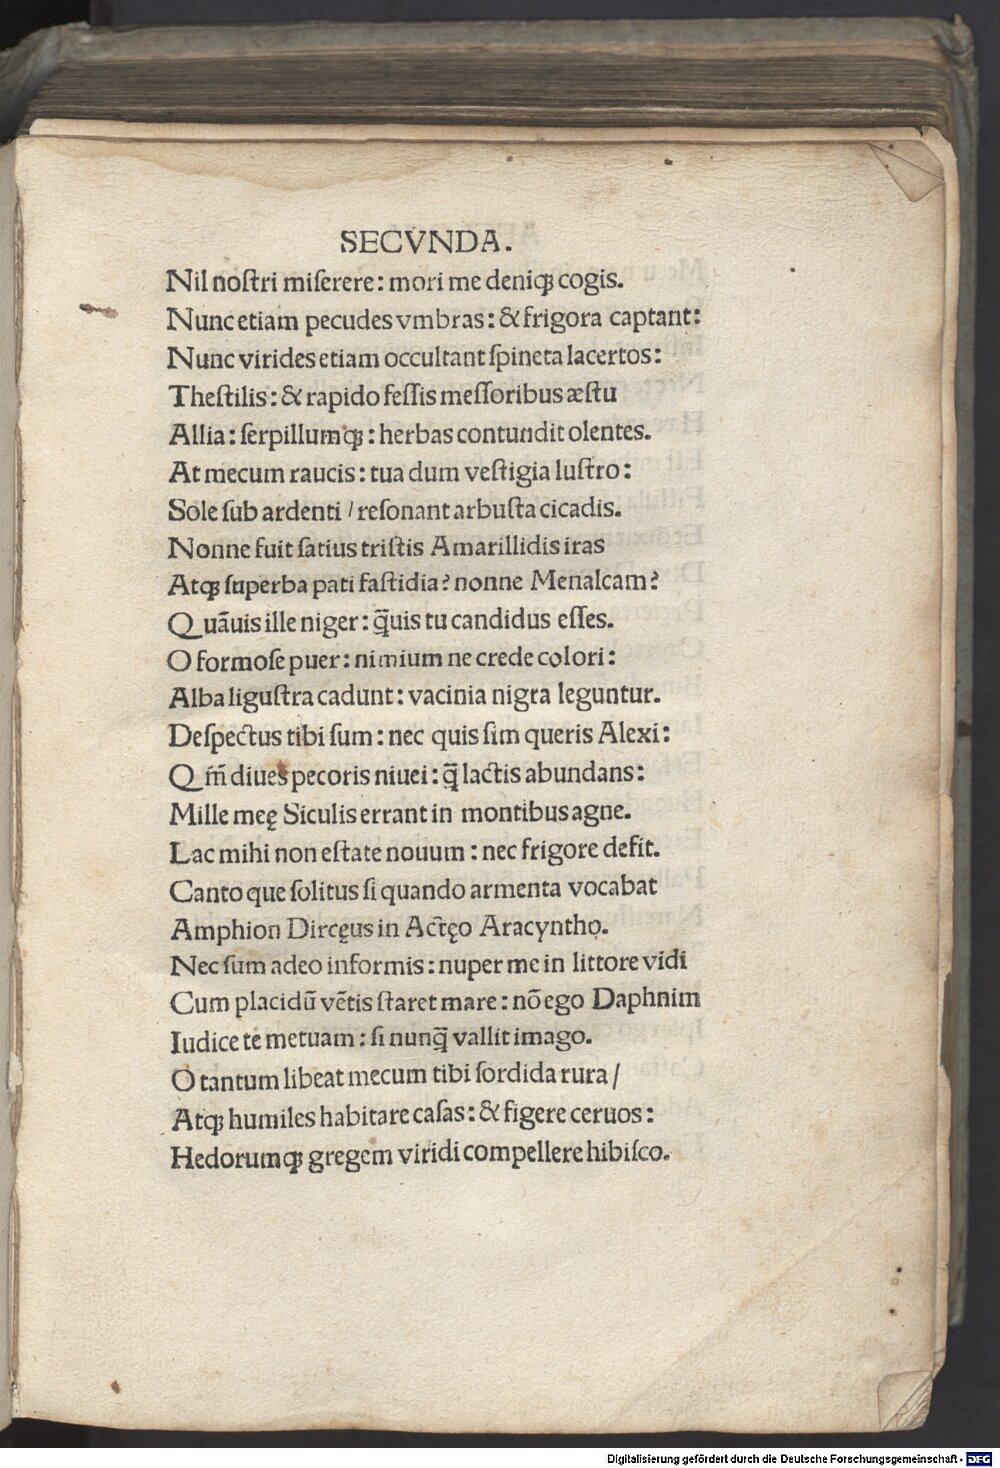 SECVNDA.
Nil noſtri miſerere: mori me deniqꝫ cogis.
Nunc etiam pecudes vmbras: & frigora captant:
Nunc virides etiam occultant ſpineta lacertos:
Theſtilis: & rapido feſſis meſſoribus æſtu
Allia: ſerpillumqꝫ: herbas contundit olentes.
At mecum raucis: tua dum veſtigia luſtro:
Sole ſub ardenti / reſonant arbuſta cicadis.
Nonne fuit ſatius triſtis Amarillidis iras
Atqꝫ ſuperba pati faſtidia? nonne Menalcam?
Quāuis ille niger: q̄uis tu candidus eſſes.
O formoſe puer: nimium ne crede colori:
Alba liguſtra cadunt: vacinia nigra leguntur.
Deſpectus tibi ſum: nec quis ſim queris Alexi:
Q m̄ diues pecoris niuei: q̄ lactis abundans:
Mille meę Siculis errant in montibus agne.
Lac mihi non eſtate nouum: nec frigore defit.
Canto que ſolitus ſi quando armenta vocabat
Amphion Dircęus in Actęo Aracyntho.
Nec ſum adeo informis: nuper me in littore vidi
Cum placidū vētis ſtaret mare: nō ego Daphnim
Iudice te metuam: ſi nunq̄ vallit imago.
O tantum libeat mecum tibi ſordida rura /
Atqꝫ humiles habitare caſas: & figere ceruos:
Hedorumqꝫ gregem viridi compellere hibiſco.
Digitalisierung gefördert durch die Deutsche Forschungsgemeinschaft - DFG